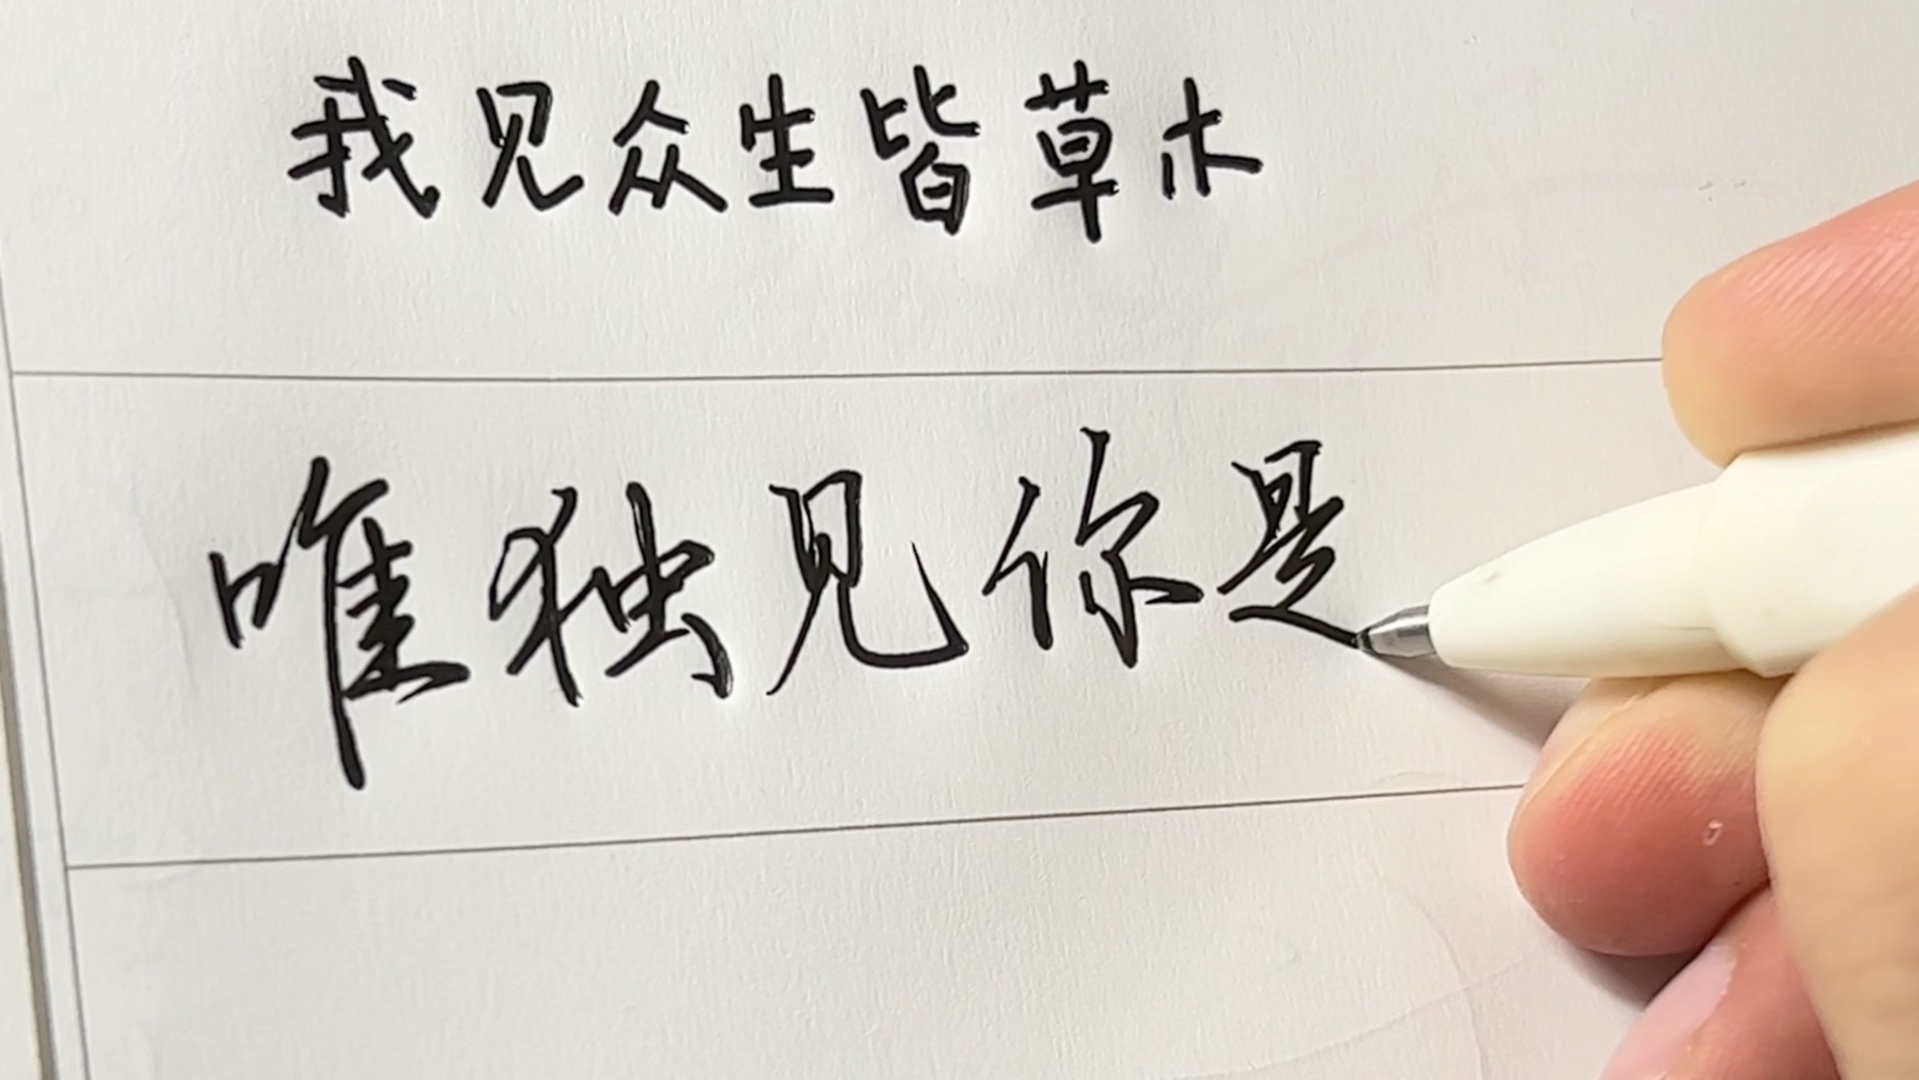 我见众生皆草木
唯独见你是